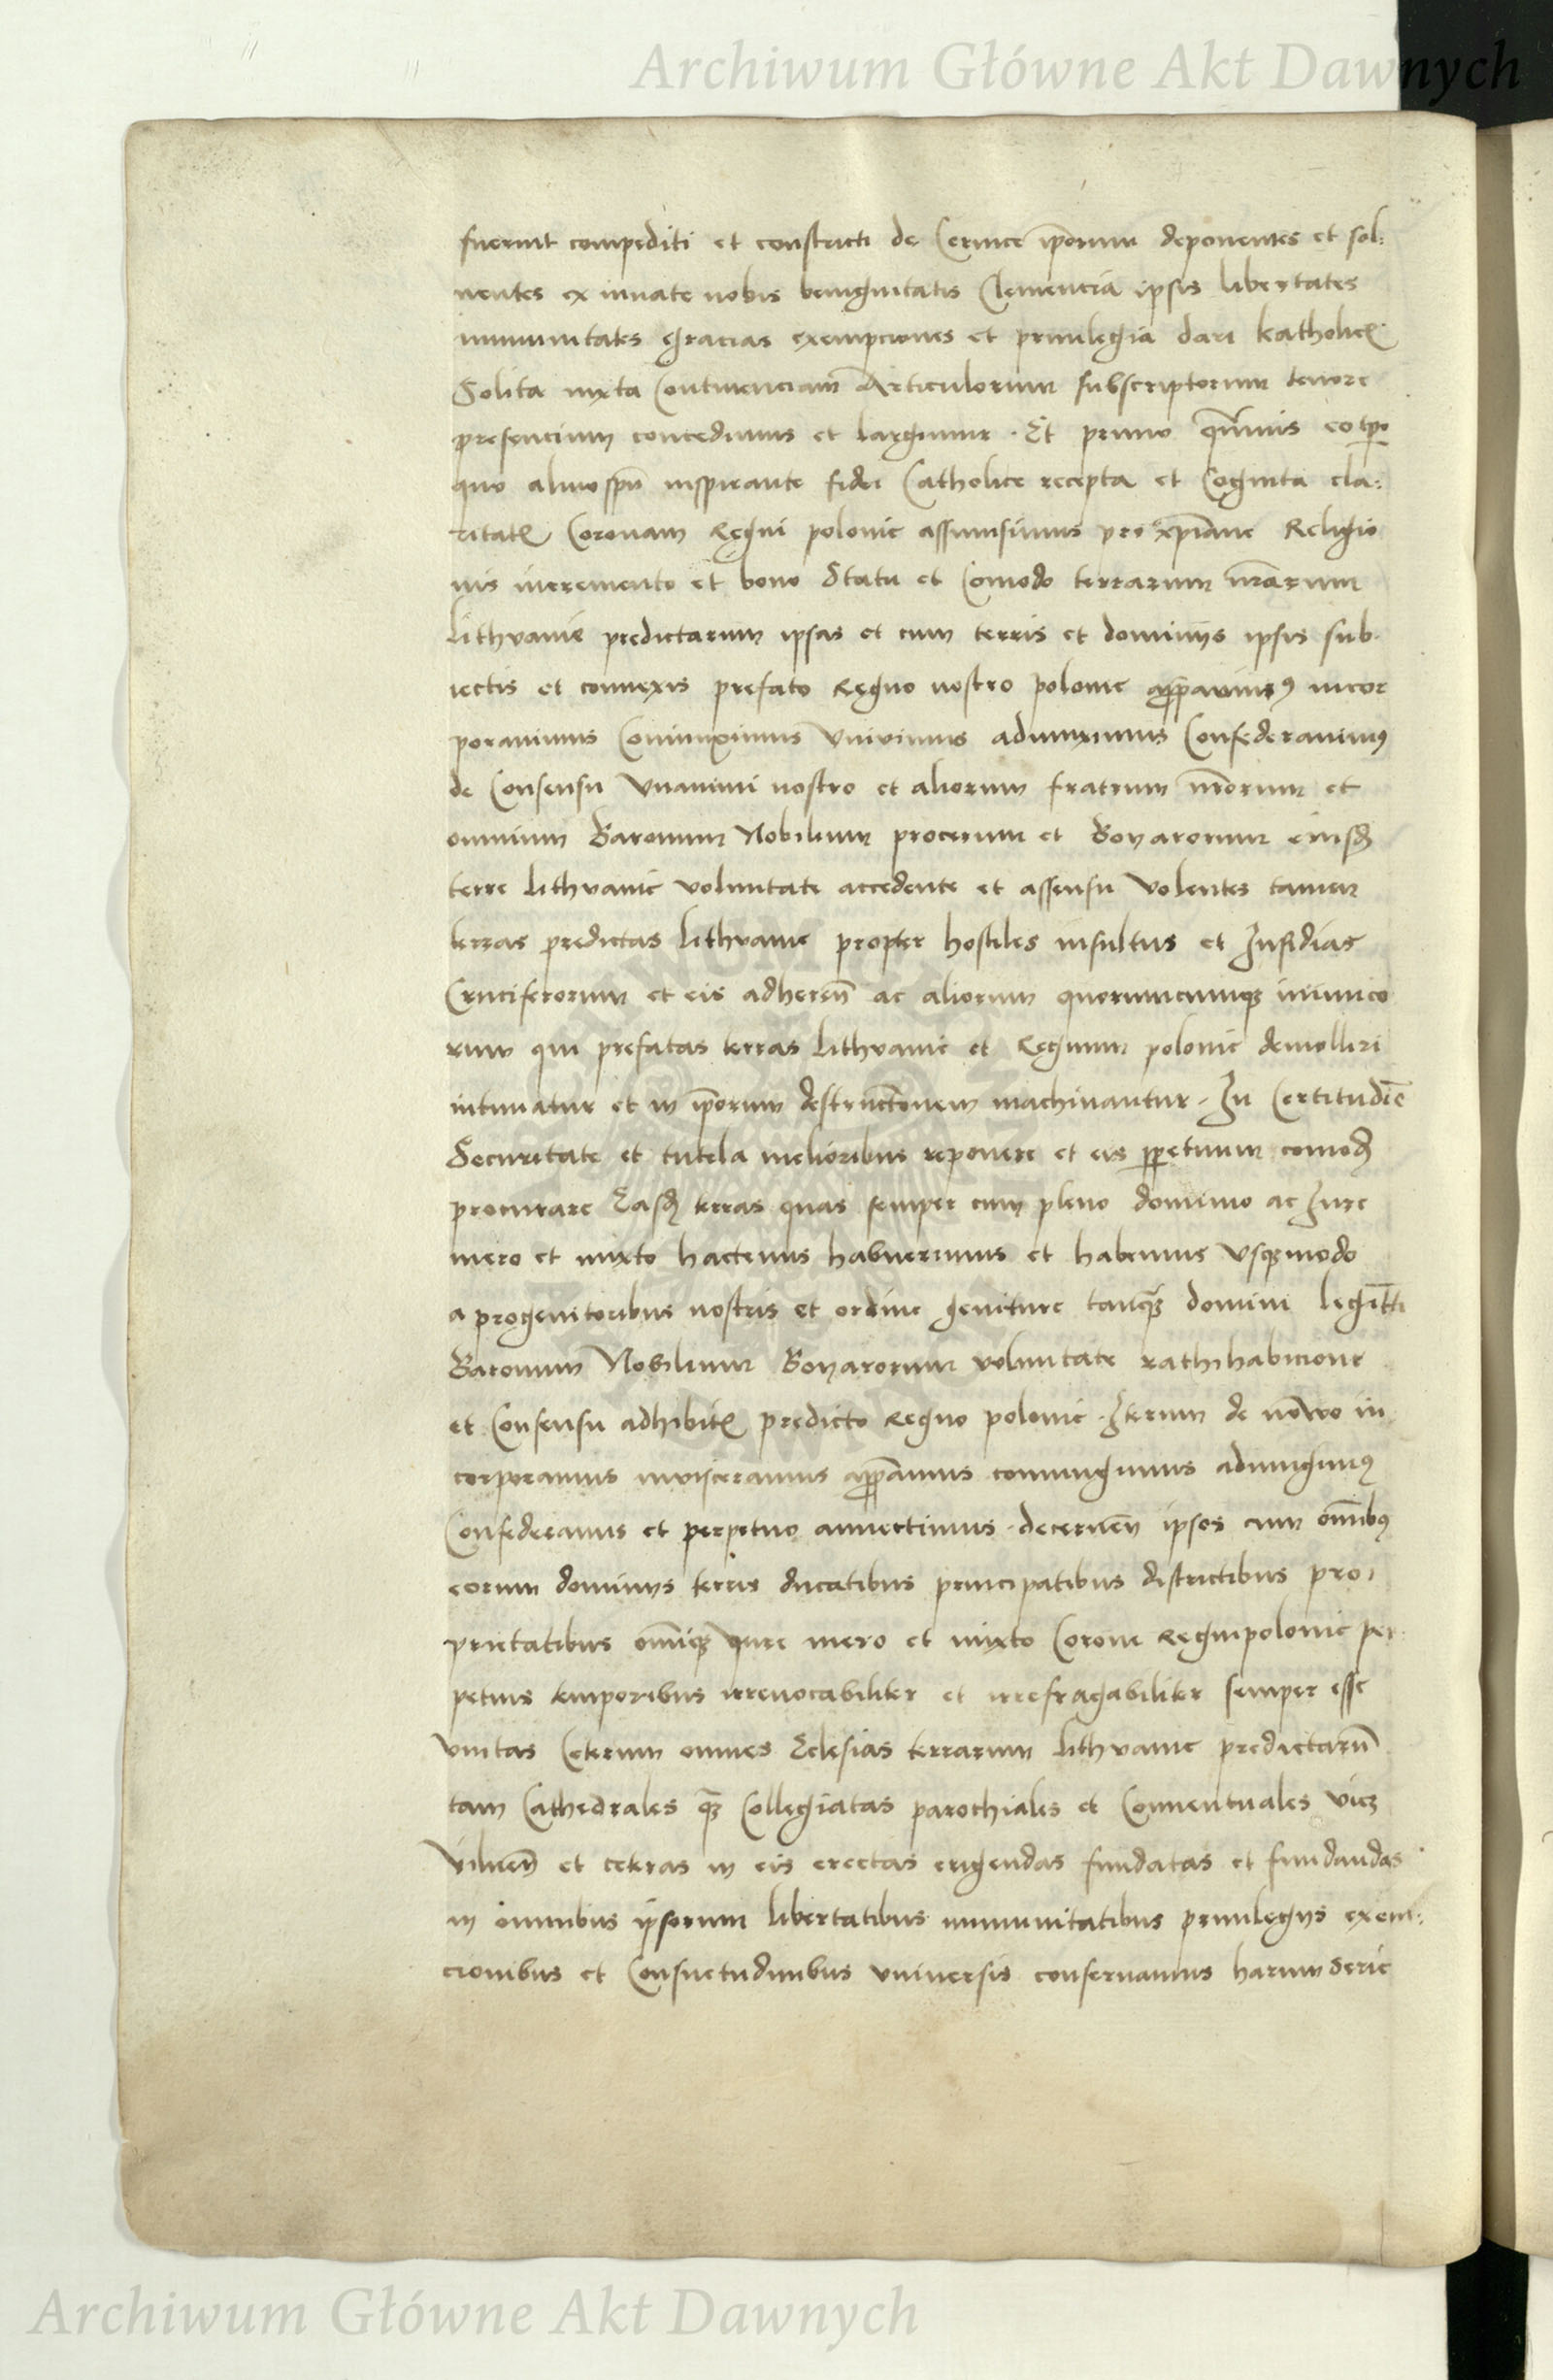 Archiwum Główne Akt Dawnych
fuerint compediti et constricti de Ceruice ip̄orum deponentes et sol:
uentes ex innate nobis benignitatis Clemencia ipsis libertates
immunitates gracias exempciones et priuilegia dari katholicꝭ
Solita iuxta Continenciam Articulorum subscriptorum tenore
presencium concedimus et largimur. Et primo qm̄uis eo tp̄e
quo almo sp̄u inspirante fidei Catholice recepta et Cognita cla:
ritatꝭ Coronam Regni polonie assumsimus pro xp̄iane Religio
nis incremento et bono Statu et Comodo terrarum nr̄arum
lithvanie predictarum ipsas et cum terris et dominijs ipsis sub
iectis et connexis prefato Regno nostro polonie app̄ropauimꝰ incor
porauimus Coniunximus Vniuimus adiunximus Confederauimꝰ
de Consensu Vnanimi nostro et aliorum fratrum nr̄orum et
omnium Baronum Nobilium procerum et Boyarorum eiusd̄
terre lithvanie voluntate accedente et assensu Volentes tamen
terras predictas lithvanie propter hostiles insultus et Insidias
Cruciferorum et eis adheren̄ ac aliorum quorumcumqꝫ inimico
rum qui prefatas terras lithvanie et Regnum polonie demolliri
intunatur et in ip̄orum destructionem machinantur. In Certitudīe
Securitate et tutela melioribus reponere et eis ꝑpetuum comod̄
procurare Easd̄ terras quas semper cum pleno dominio ac Iure
mero et mixto hactenus habuerimus et habemus vsqꝫmodo
a progenitoribus nostris et ordine geniture tanqꝫ domini legitt̄i
Baronum Nobilium Boyarorum voluntate rathihabicione
et Consensu adhibitꝭ predicto Regno polonie. Iterum de nowo in
corporamus inuisceramus app̄riamus coniungimus adiungimꝰ
Confederamus et perpetuo annectimus. decernen̄ ipsos cum om̄ibꝰ
eorum dominijs terris ducatibus principatibus districtibus pro:
prietatibus om̄iqꝫ iure mero et mixto Corone Regni polonie per
petuis temporibus irreuocabiliter et irrefragabiliter semper esse
vnitas Ceterum omnes Eclesias terrarum lithvanie predictarū
tam Cathedrales qꝫ Collegiatas parochiales et Conuentuales vicꝫ
Vilnen̄ et ceteras in eis erectas erigendas fundatas et fundandas
in omnibus ipsorum libertatibus immunitatibus priuilegijs exem:
cionibus et Consuetudinibus vniuersis conseruamus harum serie
Archiwum Główne Akt Dawnych